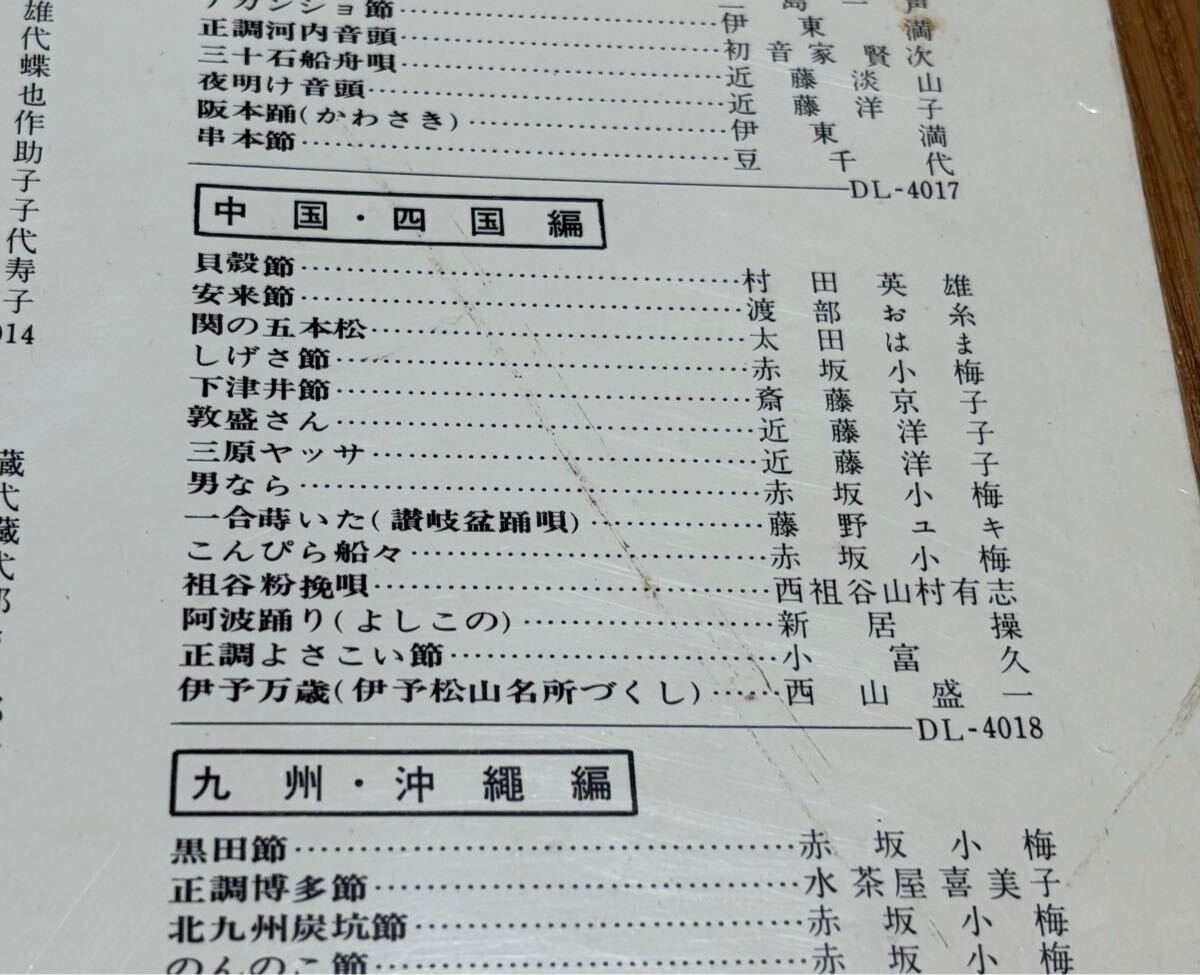 雄代蝶也作助子子代寿子
014
正調河内音頭
三十石船舟唄‥‥‥初音家賢次
夜明け音頭‥‥‥近藤淡山
阪本踊(かわさき)‥‥‥近藤洋子
伊東満
串本節‥‥‥豆千代
DL-4017
中国・四国編
貝殻節‥‥‥村田英雄
安来節‥‥‥渡部お糸
関の五本松‥‥‥太田はま
しげさ節‥‥‥赤坂小梅
下津井節‥‥‥斎藤京子
敦盛さん‥‥‥近藤洋子
三原ヤッサ‥‥‥近藤洋子
男なら‥‥‥赤坂小梅
一合蒔いた(讃岐盆踊唄)‥‥‥藤野ユキ
こんぴら船々‥‥‥赤坂小梅
祖谷粉挽唄‥‥‥西祖谷山村有志
阿波踊り(よしこの)‥‥‥新居操
正調よさこい節‥‥‥小富久
伊予万歳(伊予松山名所づくし)‥‥‥西山盛一
DL-4018
九州・沖縄編
黒田節‥‥‥赤坂小梅
正調博多節‥‥‥水茶屋喜美子
北九州炭坑節‥‥‥赤坂小梅
のんのこ節‥‥‥赤坂小梅